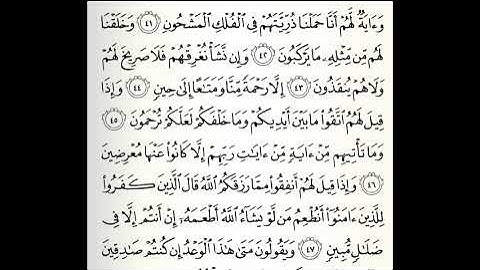 وَءَايَةٌ لَّهُمْ أَنَّا حَمَلْنَا ذُرِّيَّتَهُمْ فِى ٱلْفُلْكِ ٱلْمَشْحُونِ ٤١ وَخَلَقْنَا
لَهُم مِّن مِّثْلِهِۦ مَا يَرْكَبُونَ ٤٢ وَإِن نَّشَأْ نُغْرِقْهُمْ فَلَا صَرِيخَ لَهُمْ
وَلَا هُمْ يُنقَذُونَ ٤٣ إِلَّا رَحْمَةً مِّنَّا وَمَتَـٰعًا إِلَىٰ حِينٍ ٤٤ وَإِذَا
قِيلَ لَهُمُ ٱتَّقُوا۟ مَا بَيْنَ أَيْدِيكُمْ وَمَا خَلْفَكُمْ لَعَلَّكُمْ تُرْحَمُونَ
٤٥ وَمَا تَأْتِيهِم مِّنْ ءَايَةٍ مِّنْ ءَايَـٰتِ رَبِّهِمْ إِلَّا كَانُوا۟ عَنْهَا مُعْرِضِينَ
٤٦ وَإِذَا قِيلَ لَهُمْ أَنفِقُوا۟ مِمَّا رَزَقَكُمُ ٱللَّهُ قَالَ ٱلَّذِينَ كَفَرُوا۟
لِلَّذِينَ ءَامَنُوٓا۟ أَنُطْعِمُ مَن لَّوْ يَشَآءُ ٱللَّهُ أَطْعَمَهُۥٓ إِنْ أَنتُمْ إِلَّا فِى
ضَلَـٰلٍ مُّبِينٍ ٤٧ وَيَقُولُونَ مَتَىٰ هَـٰذَا ٱلْوَعْدُ إِن كُنتُمْ صَـٰدِقِينَ